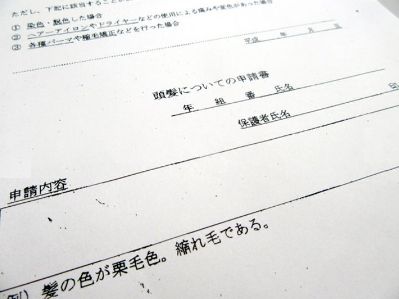 ただし、下記に該当することが
① 染色・脱色した場合
② ヘアーアイロンやドライヤーなどの使用による痛みや変色があった場合
③ 各種パーマや縮毛矯正などを行った場合
平成　年　月　日
頭髪についての申請書
年　組　番　氏名
保護者氏名　印
申請内容
例）髪の色が栗毛色。縮れ毛である。